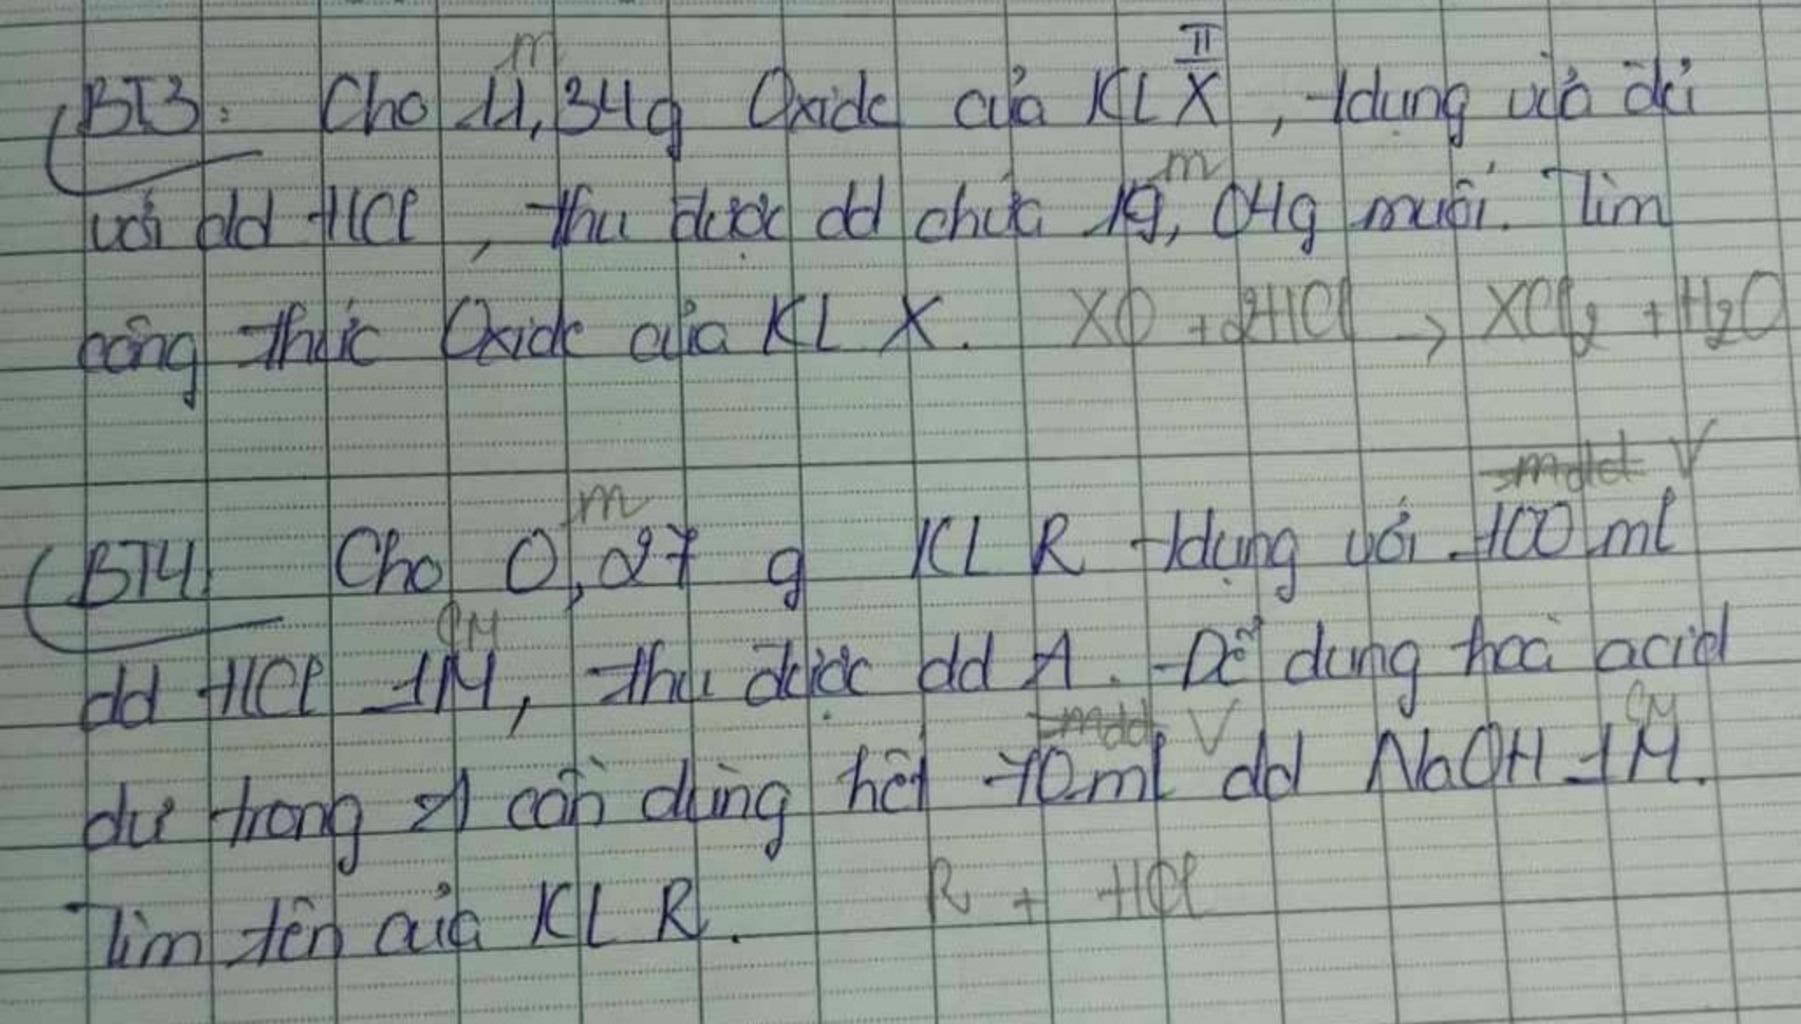 m II
BT3: Cho 11,34g Oxide của KL X, tdụng vừa đủ
m
với dd HCl, thu được dd chứa 19,04g muối. Tìm
công thức Oxide của KL X. XO + 2HCl → XCl₂ + H₂O
mdd V
m
BT4: Cho 0,27 g KL R tdụng với 100 ml
CM
dd HCl 1M, thu được dd A. Để dung hoà acid
mdd V CM
dư trong A cần dùng hết 70ml dd NaOH 1M.
Tìm tên của KL R. R + HCl